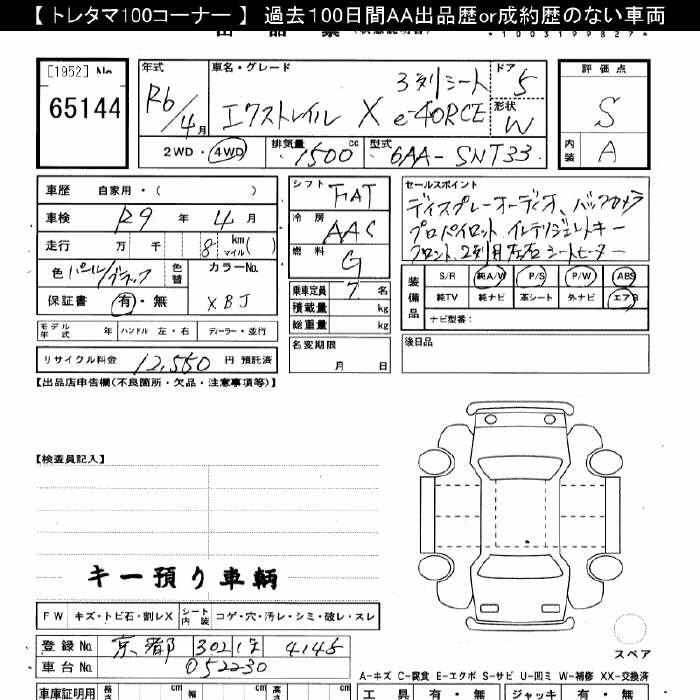 【 トレタマ100コーナー 】 過去100日間AA出品歴or成約歴のない車両
*10031998 27*
[1952] No.
65144
年式 R6/4月
車名・グレード エクストレイル X e-4ORCE 3列シート
ドア 5
形状 W
評価点 S
内装 A
2WD・4WD
排気量 1500 cc
型式 6AA-SNT33
車歴 自家用・( )
車検 R9 年 4 月
走行 万 千 8 km マイル( )
色 パール/ブラック 色替
カラーNo. XBJ
保証書 有・無
モデル年式 年 ハンドル 左・右 ディーラー・並行
リサイクル料金 12,550 円 預託済
シフト FAT
冷房 AAC
燃料 G
乗車定員 7 名
積載量 kg
総重量 kg
名変期限 月 日
セールスポイント
ディスプレーオーディオ、バックカメラ
プロパイロット インテリジェントキー
フロント、2列目左右シートヒーター
装備品
S/R 純A/W P/S P/W ABS
純TV 純ナビ 革シート 外ナビ エアB
ナビ型番:
後日品
【出品店申告欄(不良箇所・欠品・注意事項等)】
【検査員記入】
キー預り車輌
FW キズ・トビ石・割レX シート内装 コゲ・穴・汚レ・シミ・破レ・スレ
登録No. 京都 302 4145
車台No. 052230
スペア
A-キズ C-腐食 E-エクボ S-サビ U-凹ミ W-補修 XX-交換済
車庫証明用 長 cm 幅 cm 高 cm
工具 有・無 ジャッキ 有・無